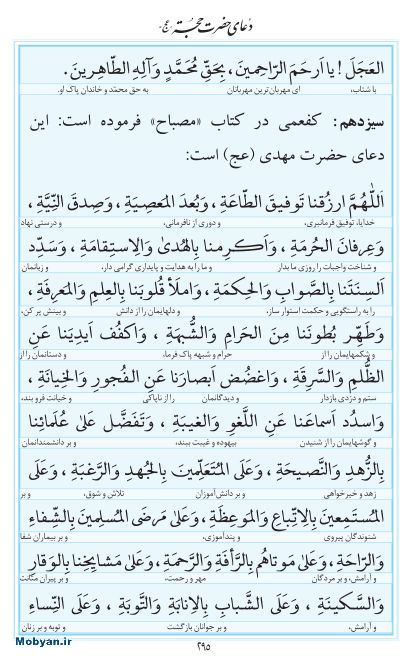 دعای حضرت حجّت (عج)
العَجَلَ! يا اَرحَمَ الرّاحِمينَ، بِحَقِّ مُحَمَّدٍ وَآلِهِ الطّاهِرينَ.
با شتاب، ای مهربان‌ترین مهربانان به حق محمّد و خاندان پاک او.
سیزدهم: کفعمی در کتاب «مصباح» فرموده است: این
دعای حضرت مهدی (عج) است:
اَللّٰهُمَّ ارزُقنا تَوفيقَ الطّاعَةِ، وَبُعدَ المَعصِيَةِ، وَصِدقَ النِّيَّةِ،
خدایا، توفیق فرمانبری، و دوری از نافرمانی، و درستی نهاد
وَعِرفانَ الحُرمَةِ، وَاَكرِمنا بِالهُدىٰ وَالاِستِقامَةِ، وَسَدِّد
و شناخت واجبات را روزی ما بدار و ما را به هدایت و پایداری گرامی دار، و زبانمان
اَلسِنَتَنا بِالصَّوابِ وَالحِكمَةِ، وَاملَأ قُلوبَنا بِالعِلمِ وَالمَعرِفَةِ،
را به راستگویی و حکمت استوار ساز، و دلهایمان را از دانش و بینش پر کن،
وَطَهِّر بُطونَنا مِنَ الحَرامِ وَالشُّبهَةِ، وَاكفُف اَيدِيَنا عَنِ
و شکمهایمان را از حرام و شبهه پاک فرما، و دستانمان را از
الظُّلمِ وَالسَّرِقَةِ، وَاغضُض اَبصارَنا عَنِ الفُجورِ وَالخِيانَةِ،
ستم و دزدی بازدار و دیدگانمان را از ناپاکی و خیانت فرو بند،
وَاسدُد اَسماعَنا عَنِ اللَّغوِ وَالغيبَةِ، وَتَفَضَّل عَلىٰ عُلَمائِنا
و گوشهایمان را از شنیدن بیهوده و غیبت ببند، و بر دانشمندانمان
بِالزُّهدِ وَالنَّصيحَةِ، وَعَلَى المُتَعَلِّمينَ بِالجُهدِ وَالرَّغبَةِ، وَعَلَى
زهد و خیرخواهی و بر دانش‌آموزان تلاش و شوق، و بر
المُستَمِعينَ بِالاِتِّباعِ وَالمَوعِظَةِ، وَعَلىٰ مَرضَى المُسلِمينَ بِالشِّفاءِ
شنوندگان پیروی و پندآموزی، و بر بیماران شفا
وَالرّاحَةِ، وَعَلىٰ مَوتاهُم بِالرَّأفَةِ وَالرَّحمَةِ، وَعَلىٰ مَشايِخِنا بِالوَقارِ
و آرامش، و بر مردگان مهر و رحمت، و بر پیران متانت
وَالسَّكينَةِ، وَعَلَى الشَّبابِ بِالاِنابَةِ وَالتَّوبَةِ، وَعَلَى النِّساءِ
و آرامش، و بر جوانان بازگشت و توبه و بر زنان
Mobyan.ir
۲۹۵